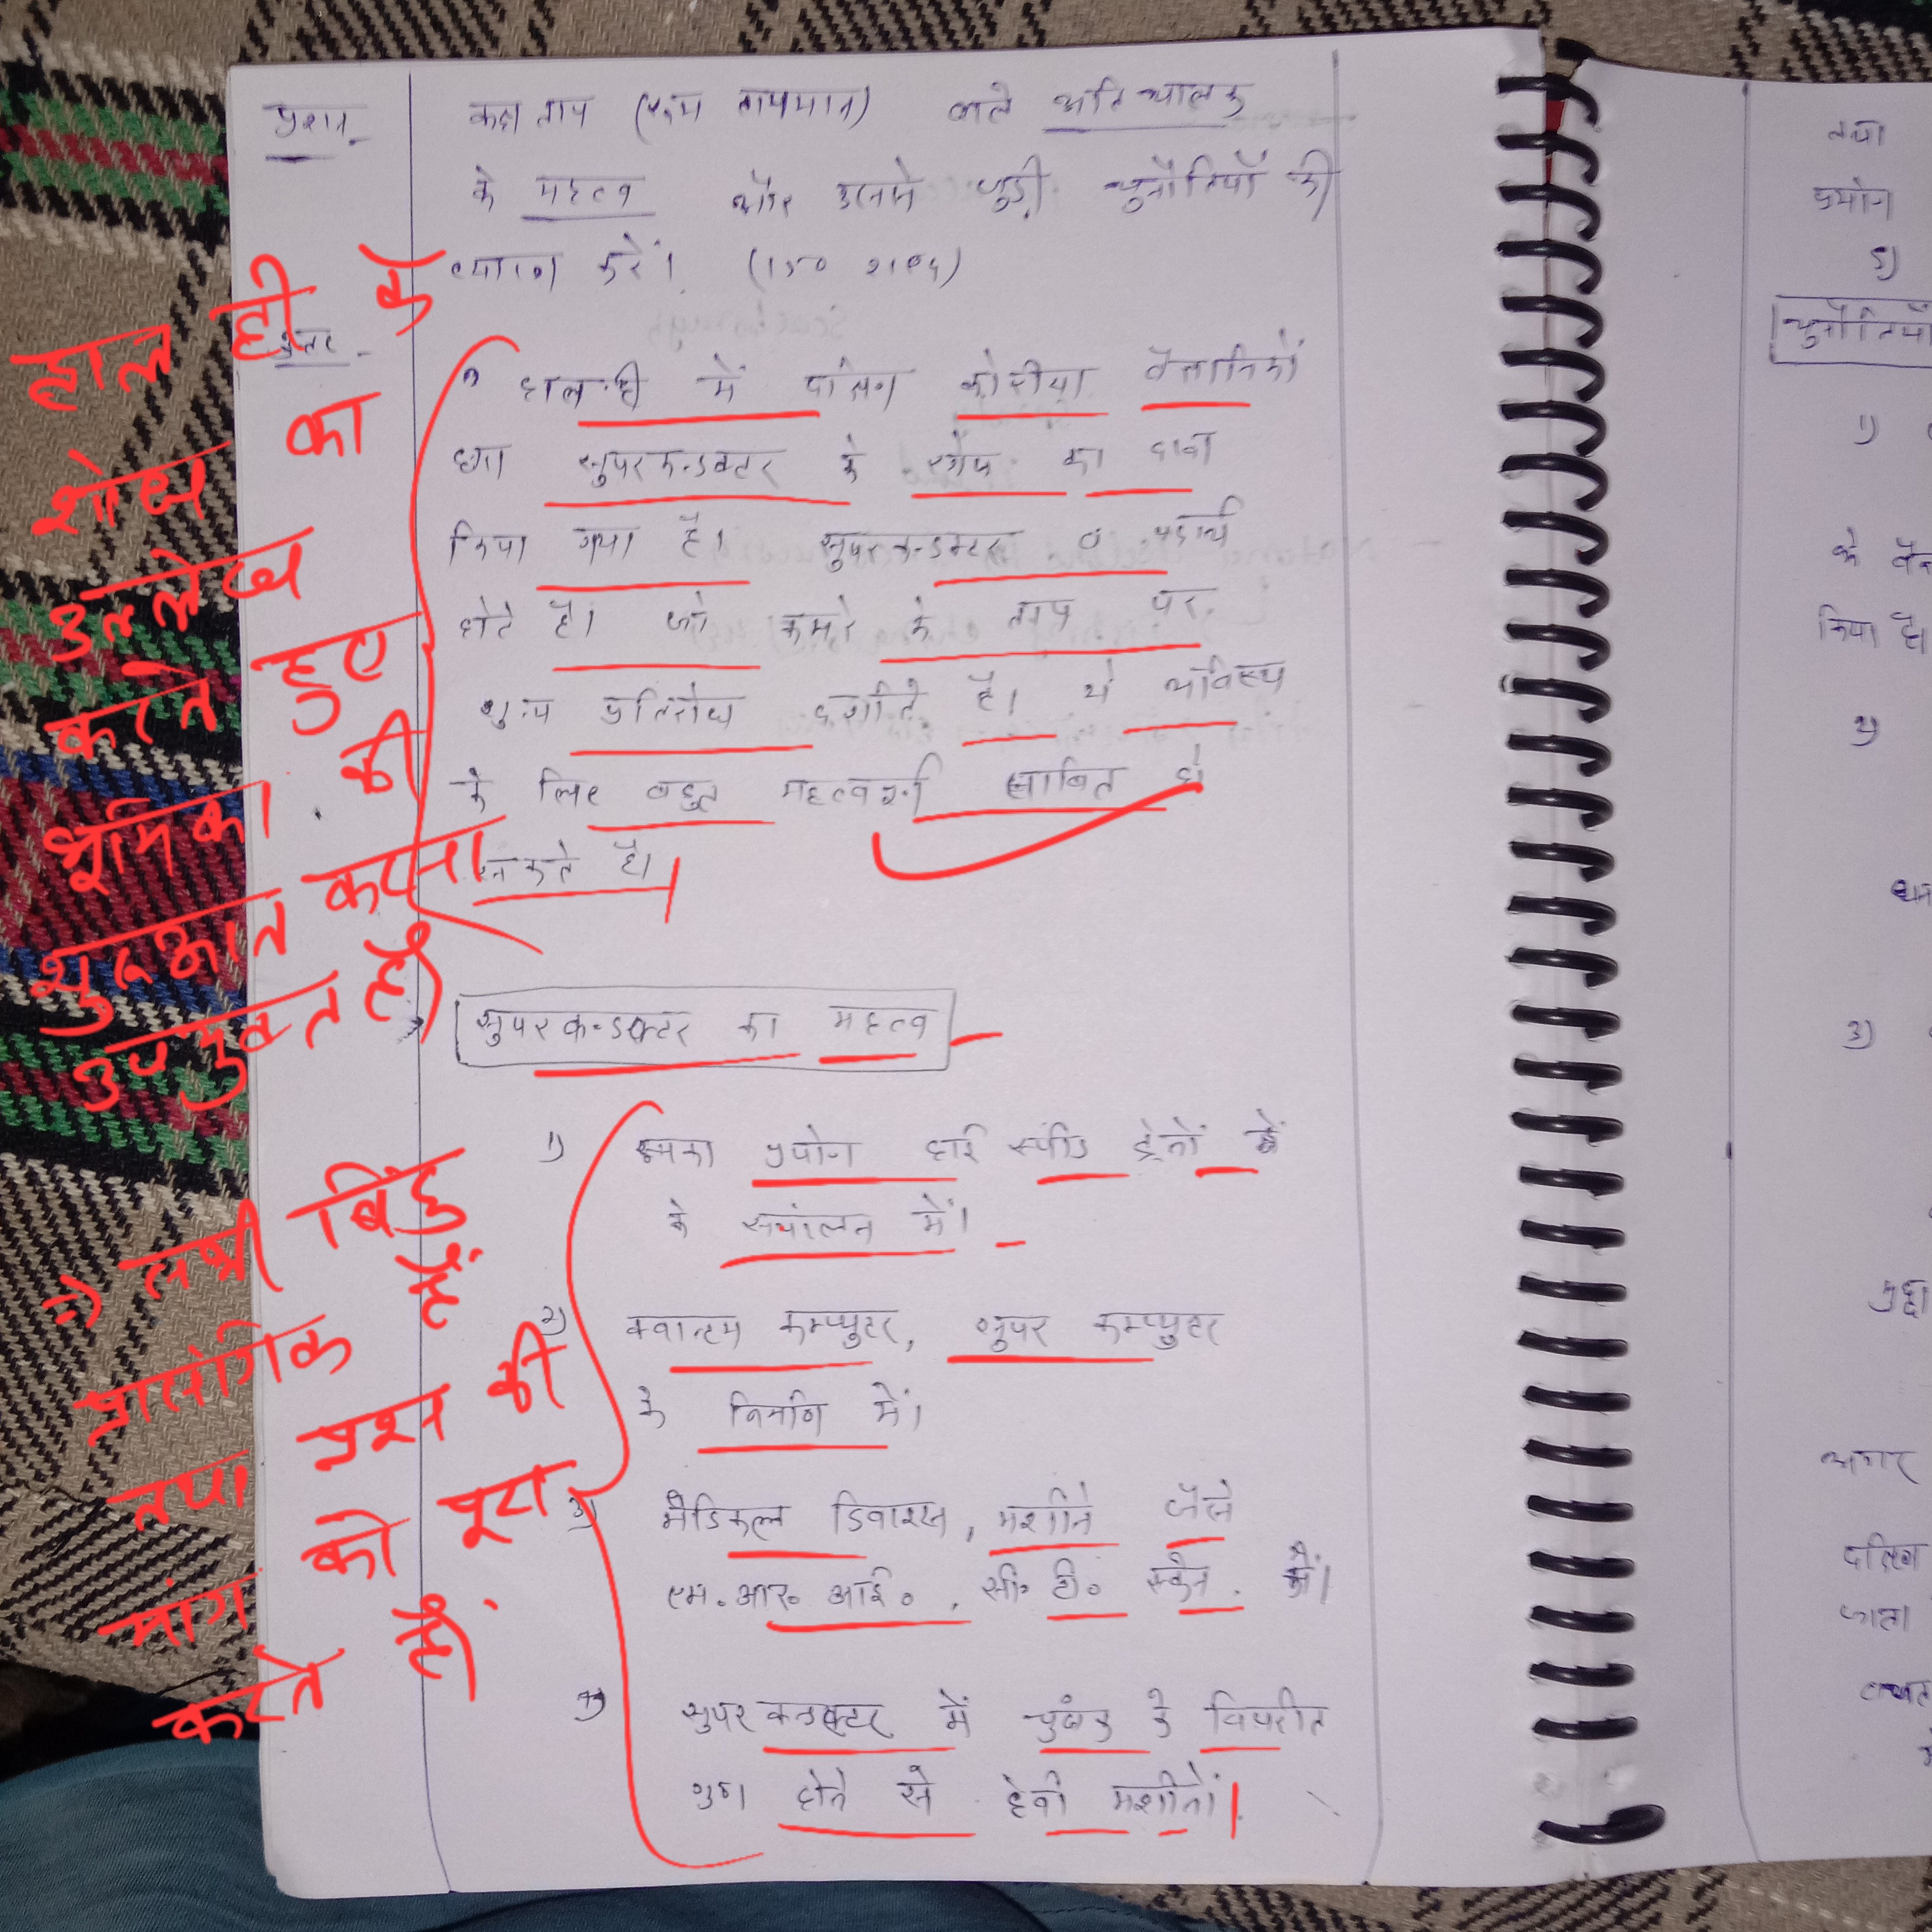 प्रश्न.
कक्ष ताप (कम तापमान) वाले अतिचालक
के महत्व और उनसे जुड़ी चुनौतियों की
व्याख्या करें। (150 शब्द)
उत्तर.
1) हाल ही में दक्षिण कोरिया वैज्ञानिकों
द्वारा सुपरकन्डक्टर के खोज का दावा
किया गया है। सुपरकन्डक्टर वे पदार्थ
होते है। जो कमरे के ताप पर
शून्य प्रतिरोध दर्शाते है। ये भविष्य
के लिए बहुत महत्वपूर्ण साबित हो
सकते है।
सुपरकन्डक्टर का महत्व
1) इसका प्रयोग हाई स्पीड ट्रेनों
के संचालन में।
2) क्वान्टम कम्प्युटर, सुपर कम्प्युटर
के निर्माण में।
3) मेडिकल डिवाइस, मशीने जैसे
एम.आर.आई०, सी० टी० स्केन. में।
4) सुपरकन्डक्टर में चुंबक के विपरीत
गुण होने से हेवी मशीनों।
हाल ही के
शोध का
उल्लेख
करते हुए
भूमिका की
शुरूआत करना
उपयुक्त है।
⇒ सभी बिंदु
प्रासंगिक हैं
तथा प्रश्न की
मांग को पूरा
करते हैं।
तथा
प्रयोग
5)
चुनौतियाँ
1)
के वैज
किया है।
2)
3)
अगर
दक्षिण
जाता